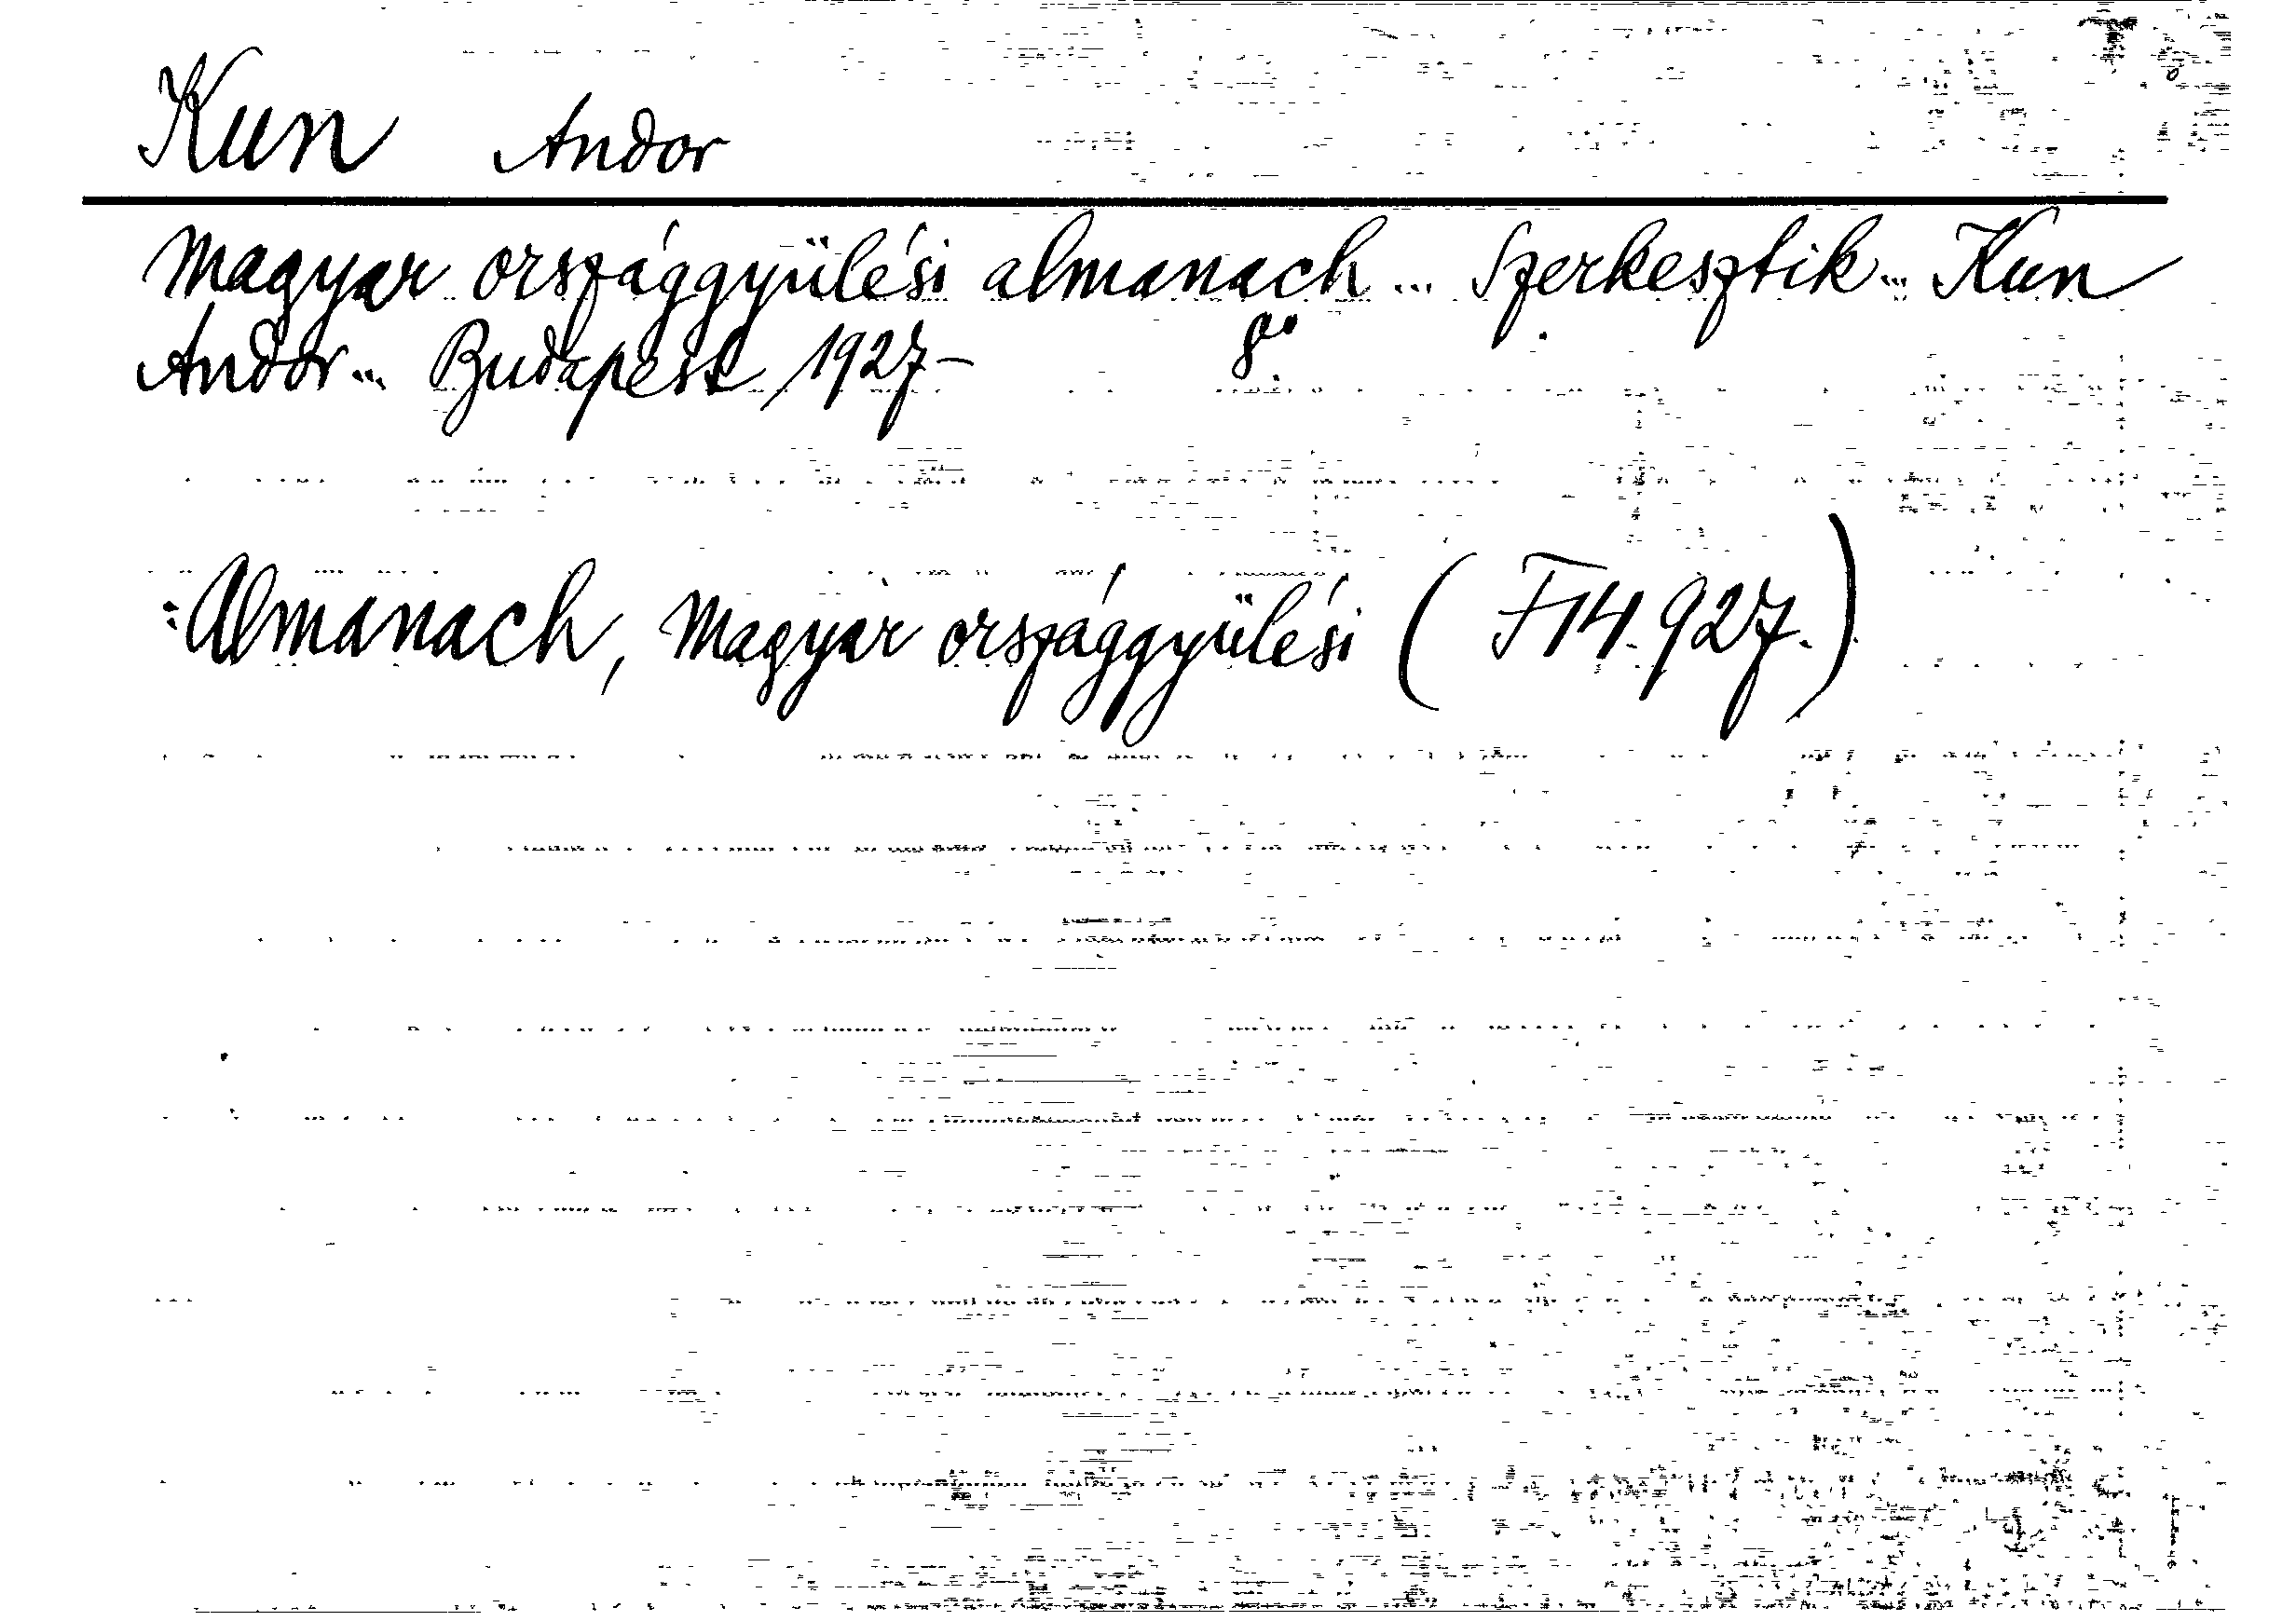 Kun Andor
Magyar országgyülési almanach... Szerkesztik... Kun
Andor... Budapest, 1927- 8°.
:Almanach, Magyar országgyülési (F14.927.)